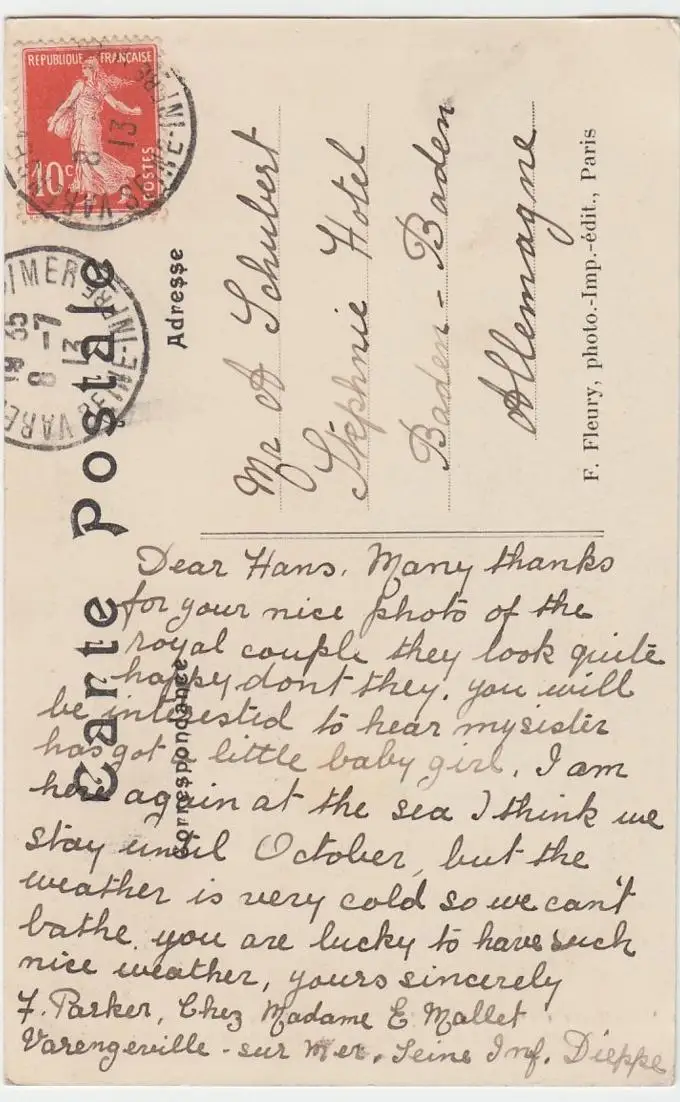 REPUBLIQUE FRANÇAISE
10c
POSTES
Carte Postale
Correspondance
Adresse
Mr A Schubert
Stéphnie Hotel
Baden-Baden
Allemagne
F. Fleury, photo.-Imp.-édit., Paris
Dear Hans. Many thanks
for your nice photo of the
royal couple they look quite
happy dont they. you will
be interested to hear my sister
has got a little baby girl. I am
here again at the sea I think we
stay until October, but the
weather is very cold so we can't
bathe. you are lucky to have such
nice weather, yours sincerely
F. Parker, Chez Madame E Mallet
Varengeville-sur Mer. Seine Inf. Dieppe